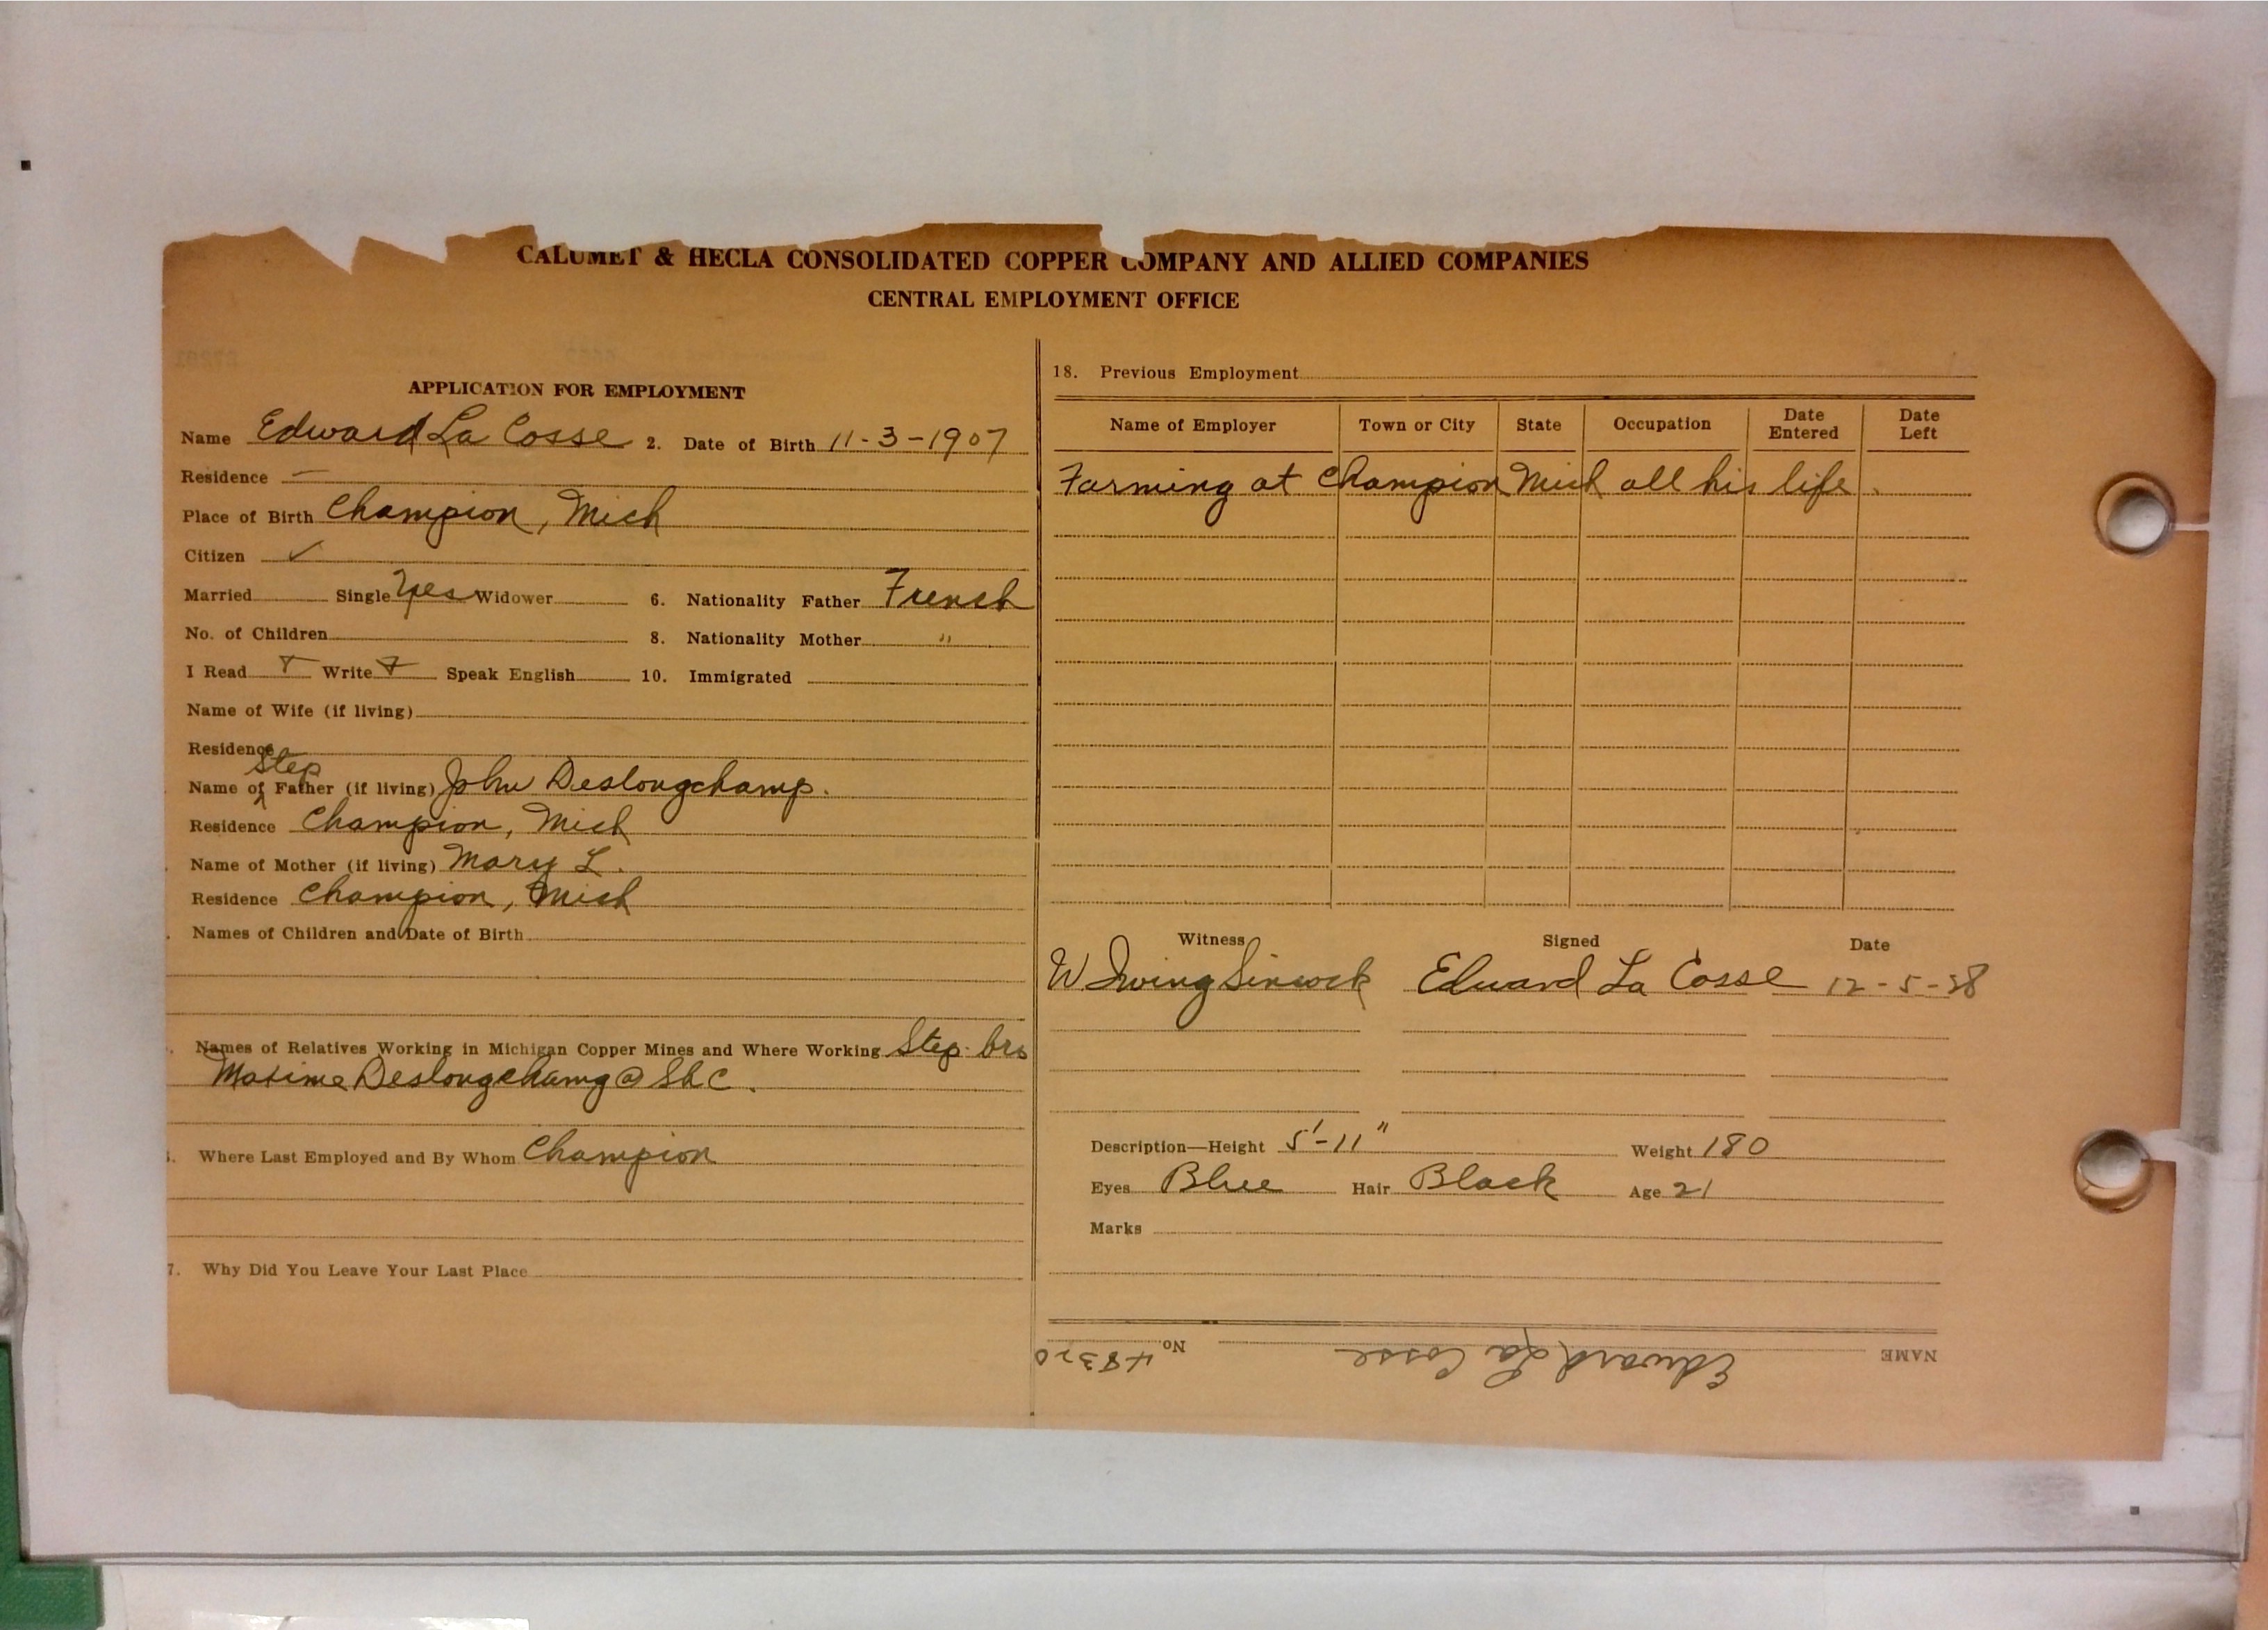 CALUMET & HECLA CONSOLIDATED COPPER COMPANY AND ALLIED COMPANIES
CENTRAL EMPLOYMENT OFFICE
APPLICATION FOR EMPLOYMENT
Name Edward La Cosse 2. Date of Birth 11-3-1907
Residence —
Place of Birth Champion, Mich
Citizen ✓
Married Single Yes Widower 6. Nationality Father French
No. of Children 8. Nationality Mother "
I Read Write Speak English 10. Immigrated
Name of Wife (if living)
Residence
Step
Name of Father (if living) John Deslongchamp.
Residence Champion, Mich
Name of Mother (if living) Mary L.
Residence Champion, Mich
Names of Children and Date of Birth
Names of Relatives Working in Michigan Copper Mines and Where Working Step-bro
Maxime Deslongchamp @
Where Last Employed and By Whom Champion
7. Why Did You Leave Your Last Place
18. Previous Employment
Name of Employer Town or City State Occupation Date Entered Date Left
Farming at Champion Mich all his life.
Witness Signed Date
W Irving Edward La Cosse 12-5-28
Description—Height 5'-11" Weight 180
Eyes Blue Hair Black Age 21
Marks
NAME Edward La Cosse No. 48320